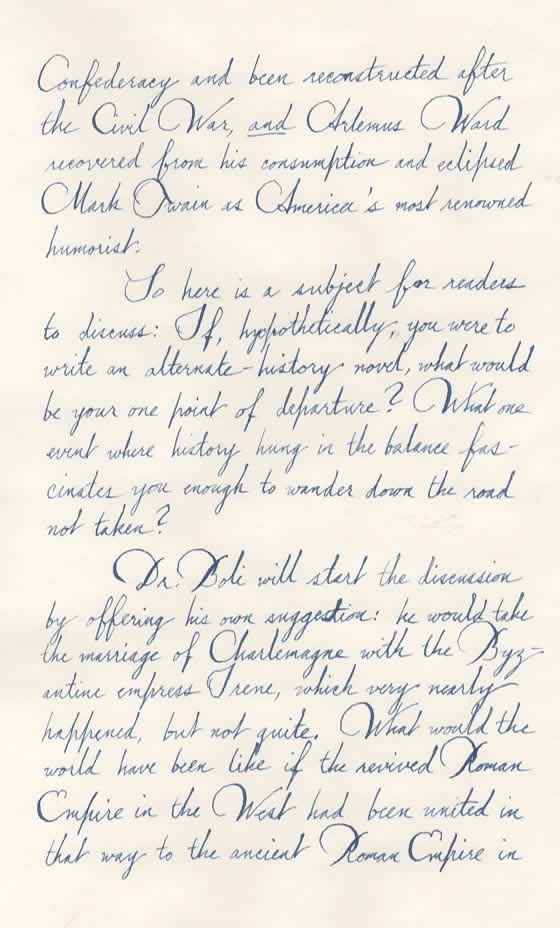 Confederacy and been reconstructed after
the Civil War, and Artemus Ward
recovered from his consumption and eclipsed
Mark Twain as America's most renowned
humorist.
So here is a subject for readers
to discuss: If, hypothetically, you were to
write an alternate-history novel, what would
be your one point of departure? What one
event where history hung in the balance fas-
cinates you enough to wander down the road
not taken?
Dr. Boli will start the discussion
by offering his own suggestion: he would take
the marriage of Charlemagne with the Byz-
antine empress Irene, which very nearly
happened, but not quite. What would the
world have been like if the revived Roman
Empire in the West had been united in
that way to the ancient Roman Empire in